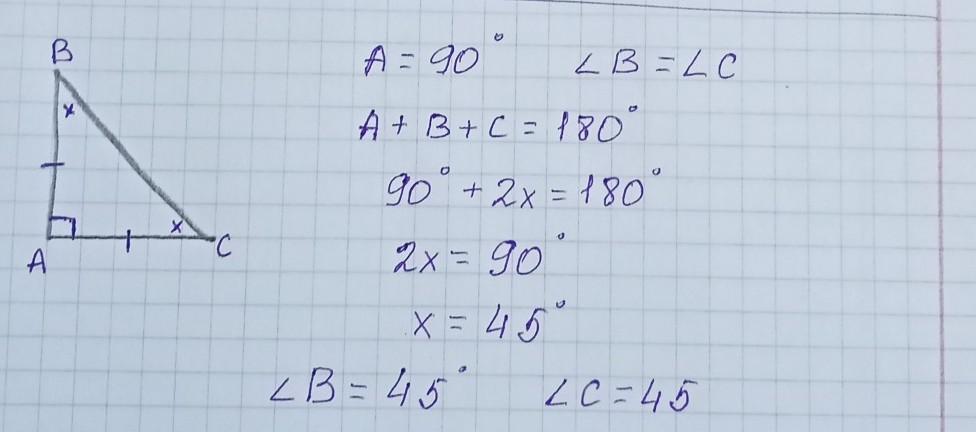 B
x
x
A
C
A = 90° ∠B = ∠C
A + B + C = 180°
90° + 2x = 180°
2x = 90°
x = 45°
∠B = 45° ∠C = 45